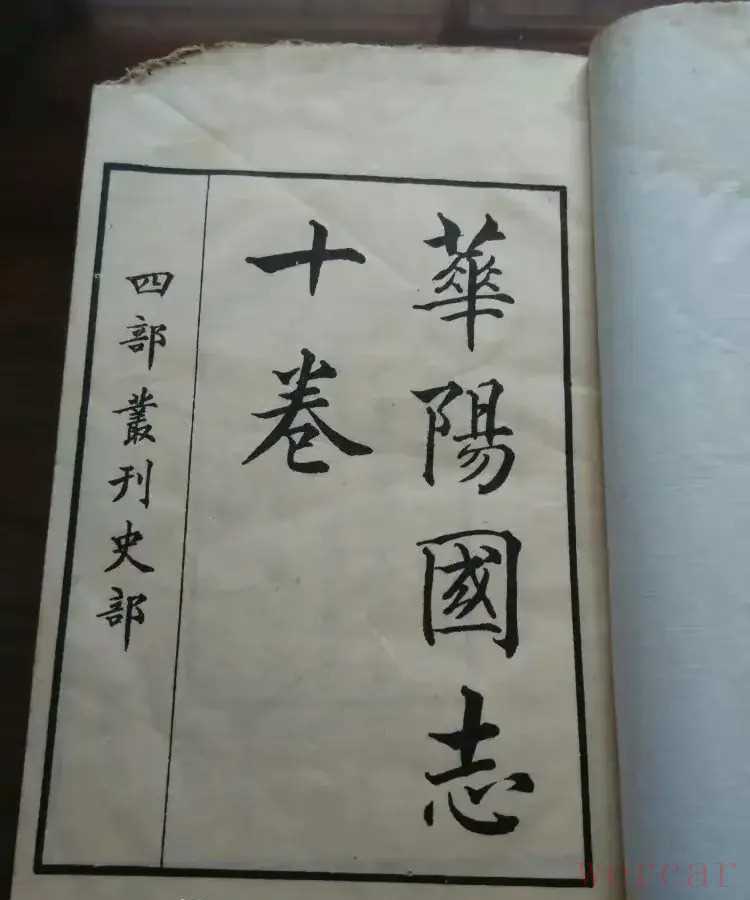 華陽國志
十卷
四部叢刊史部
wercar